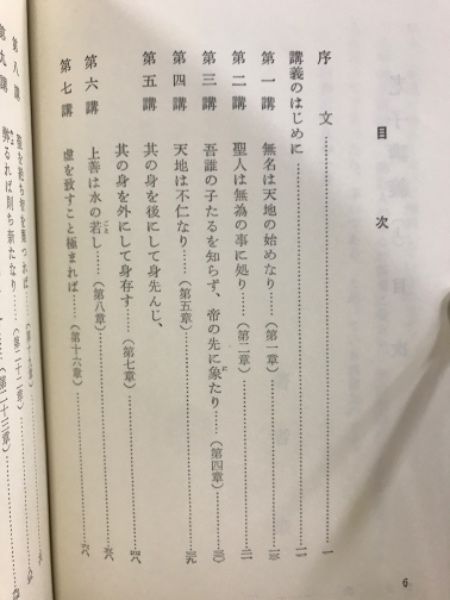 目次
序文 一
講義のはじめに 二
第一講 無名は天地の始めなり……（第一章） 一三
第二講 聖人は無為の事に処り……（第二章） 二一
第三講 吾誰の子たるを知らず、帝の先に象たり……（第四章） 三〇
第四講 天地は不仁なり……（第五章） 三九
第五講 其の身を後にして身先んじ、
其の身を外にして身存す……（第七章） 四八
第六講 上善は水の若し……（第八章）
第七講 虚を致すこと極まれば……（第十六章） 六八
第八講 聖を絶ち智を棄つれば
（第十九章）
第九講 弊るれば則ち新たなり……（第二十二章）
（第二十三章）
6